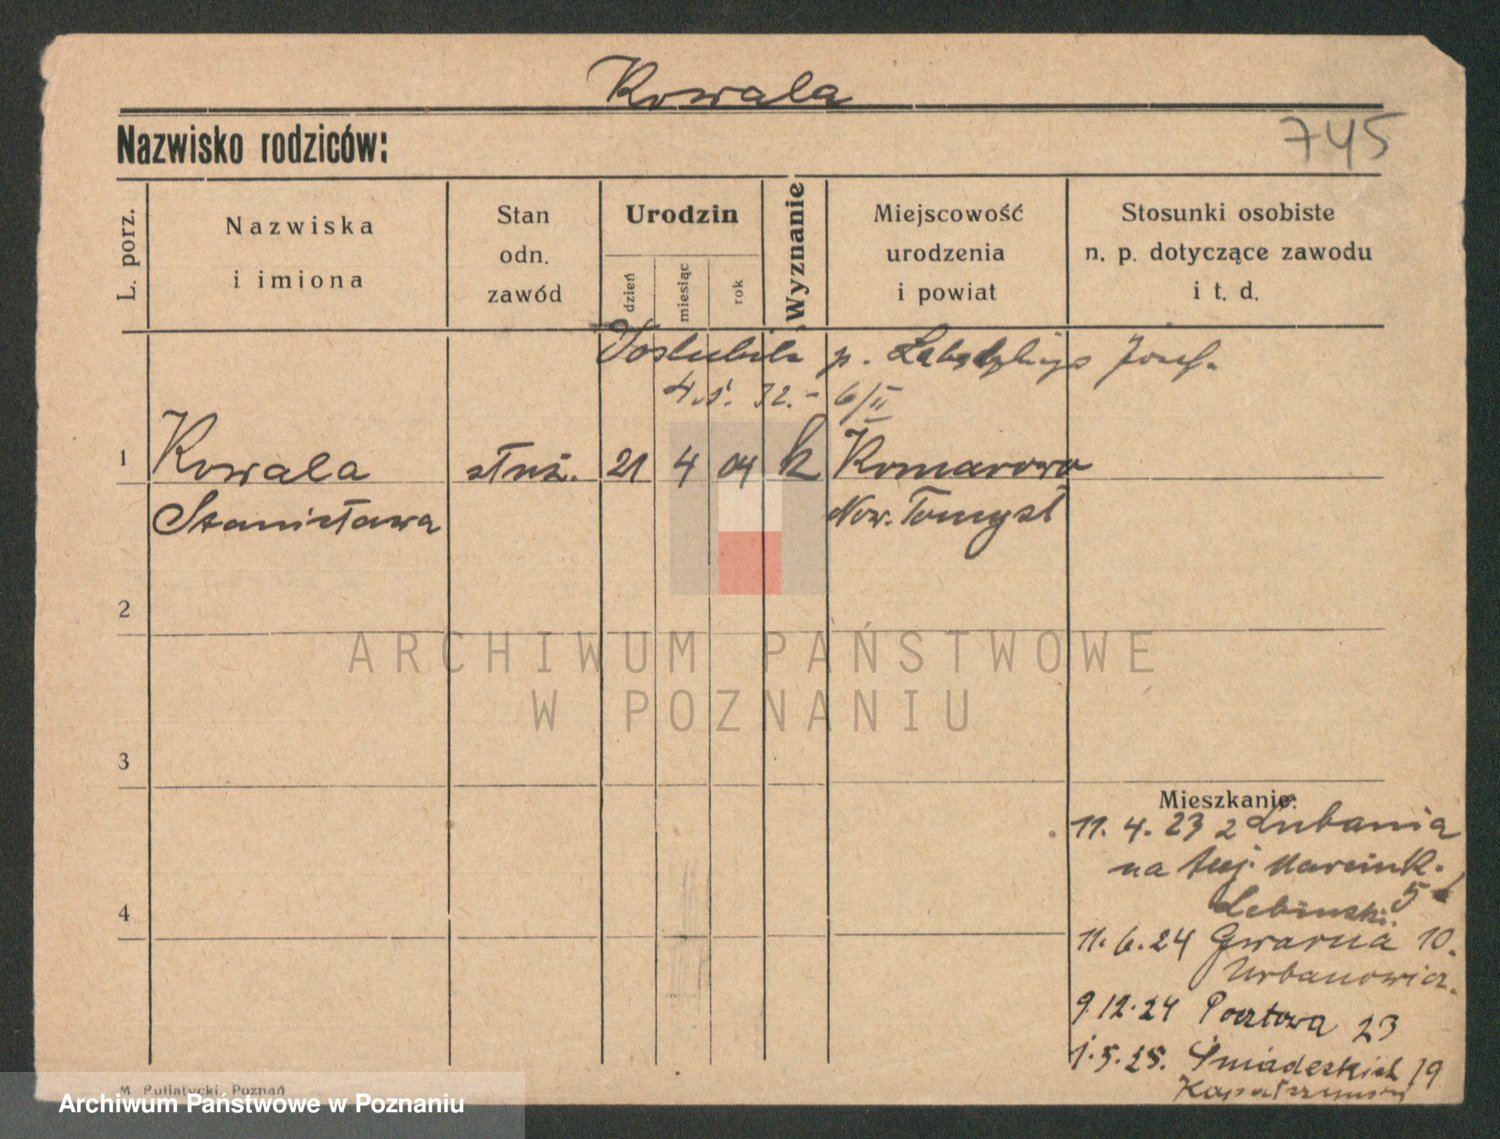 Kowala
Nazwisko rodziców:
745
L. porz.
Nazwiska
i imiona
Stan
odn.
zawód
Urodzin
dzień
miesiąc
rok
Wyznanie
Miejscowość
urodzenia
i powiat
Stosunki osobiste
n. p. dotyczące zawodu
i t. d.
Poślubiła p. Józef.
32. - 6/II
1 Kowala służ. 21 4 04 k Komorowo
Stanisława Now. Tomyśl
2
ARCHIWUM PAŃSTWOWE
W POZNANIU
3
Mieszkanie:
11. 4. 23 z Lubania
na Marcink.
5
4
Lebinski
11. 6. 24 Gwarna 10.
Urbanowicz.
9.12.24 Pocztowa 23
1.5.25. Śniadeckich 19
M. Putiatycki, Poznań
Archiwum Państwowe w Poznaniu